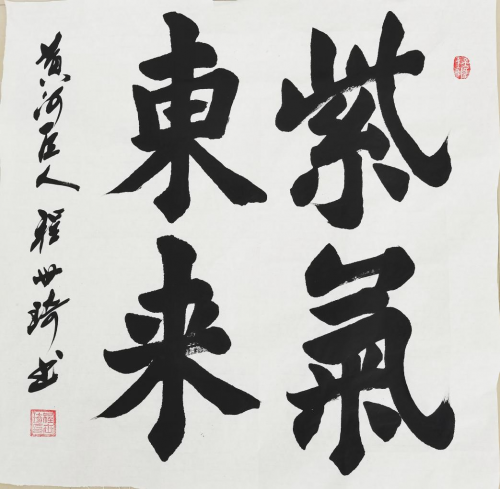 紫氣
東来
黄河人 程世琦书